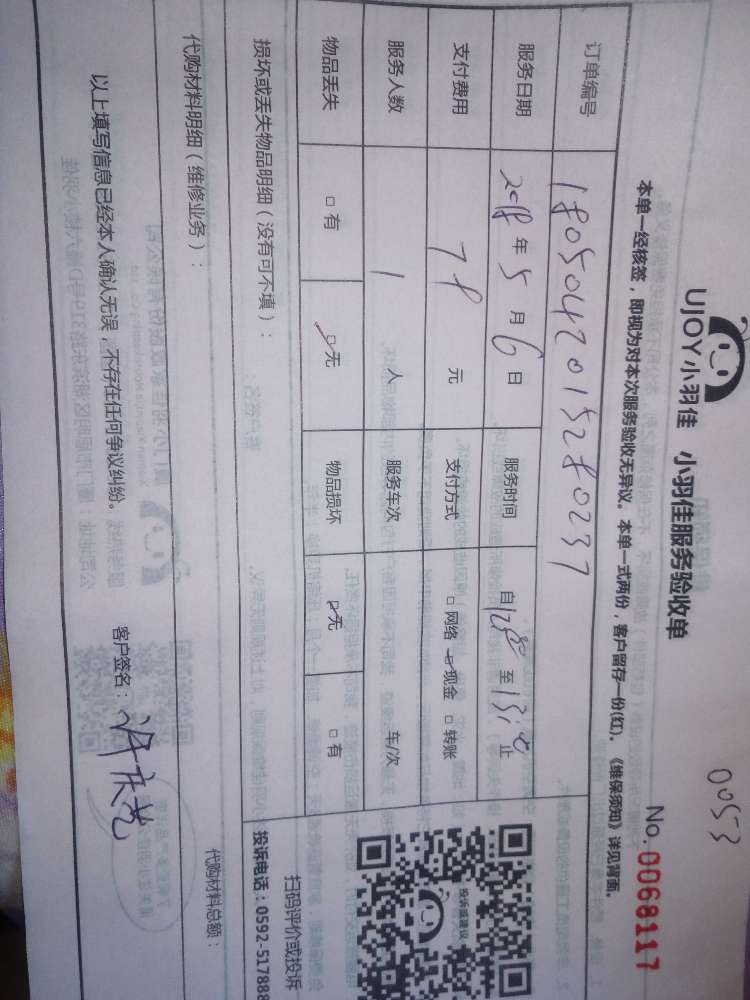 0053
UJOY小羽佳 小羽佳服务验收单
No.0068117
本单一经核签，即视为对本次服务验收无异议。本单一式两份，客户留存一份(红)。《维保须知》详见背面。
订单编号 1805042015280237
服务日期 2018年5月6日 服务时间 自 至 止
支付费用 78 元 支付方式 □网络 ☑现金 □转账
服务人数 1 人 服务车次 车/次
物品丢失 □有 ☑无 物品损坏 ☑无 □有
投诉或建议
扫码评价或投诉
损坏或丢失物品明细（没有可不填）：
投诉电话：0592-517888
代购材料明细（维修业务）：
代购材料总额：
以上填写信息已经本人确认无误，不存在任何争议纠纷。 客户签名：